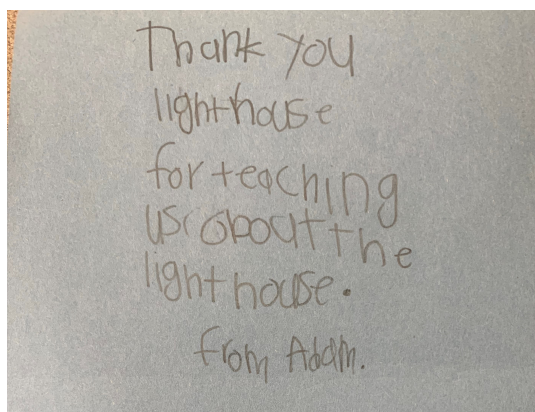 Thank you
lighthouse
for teaching
us about the
lighthouse.
from Adam.